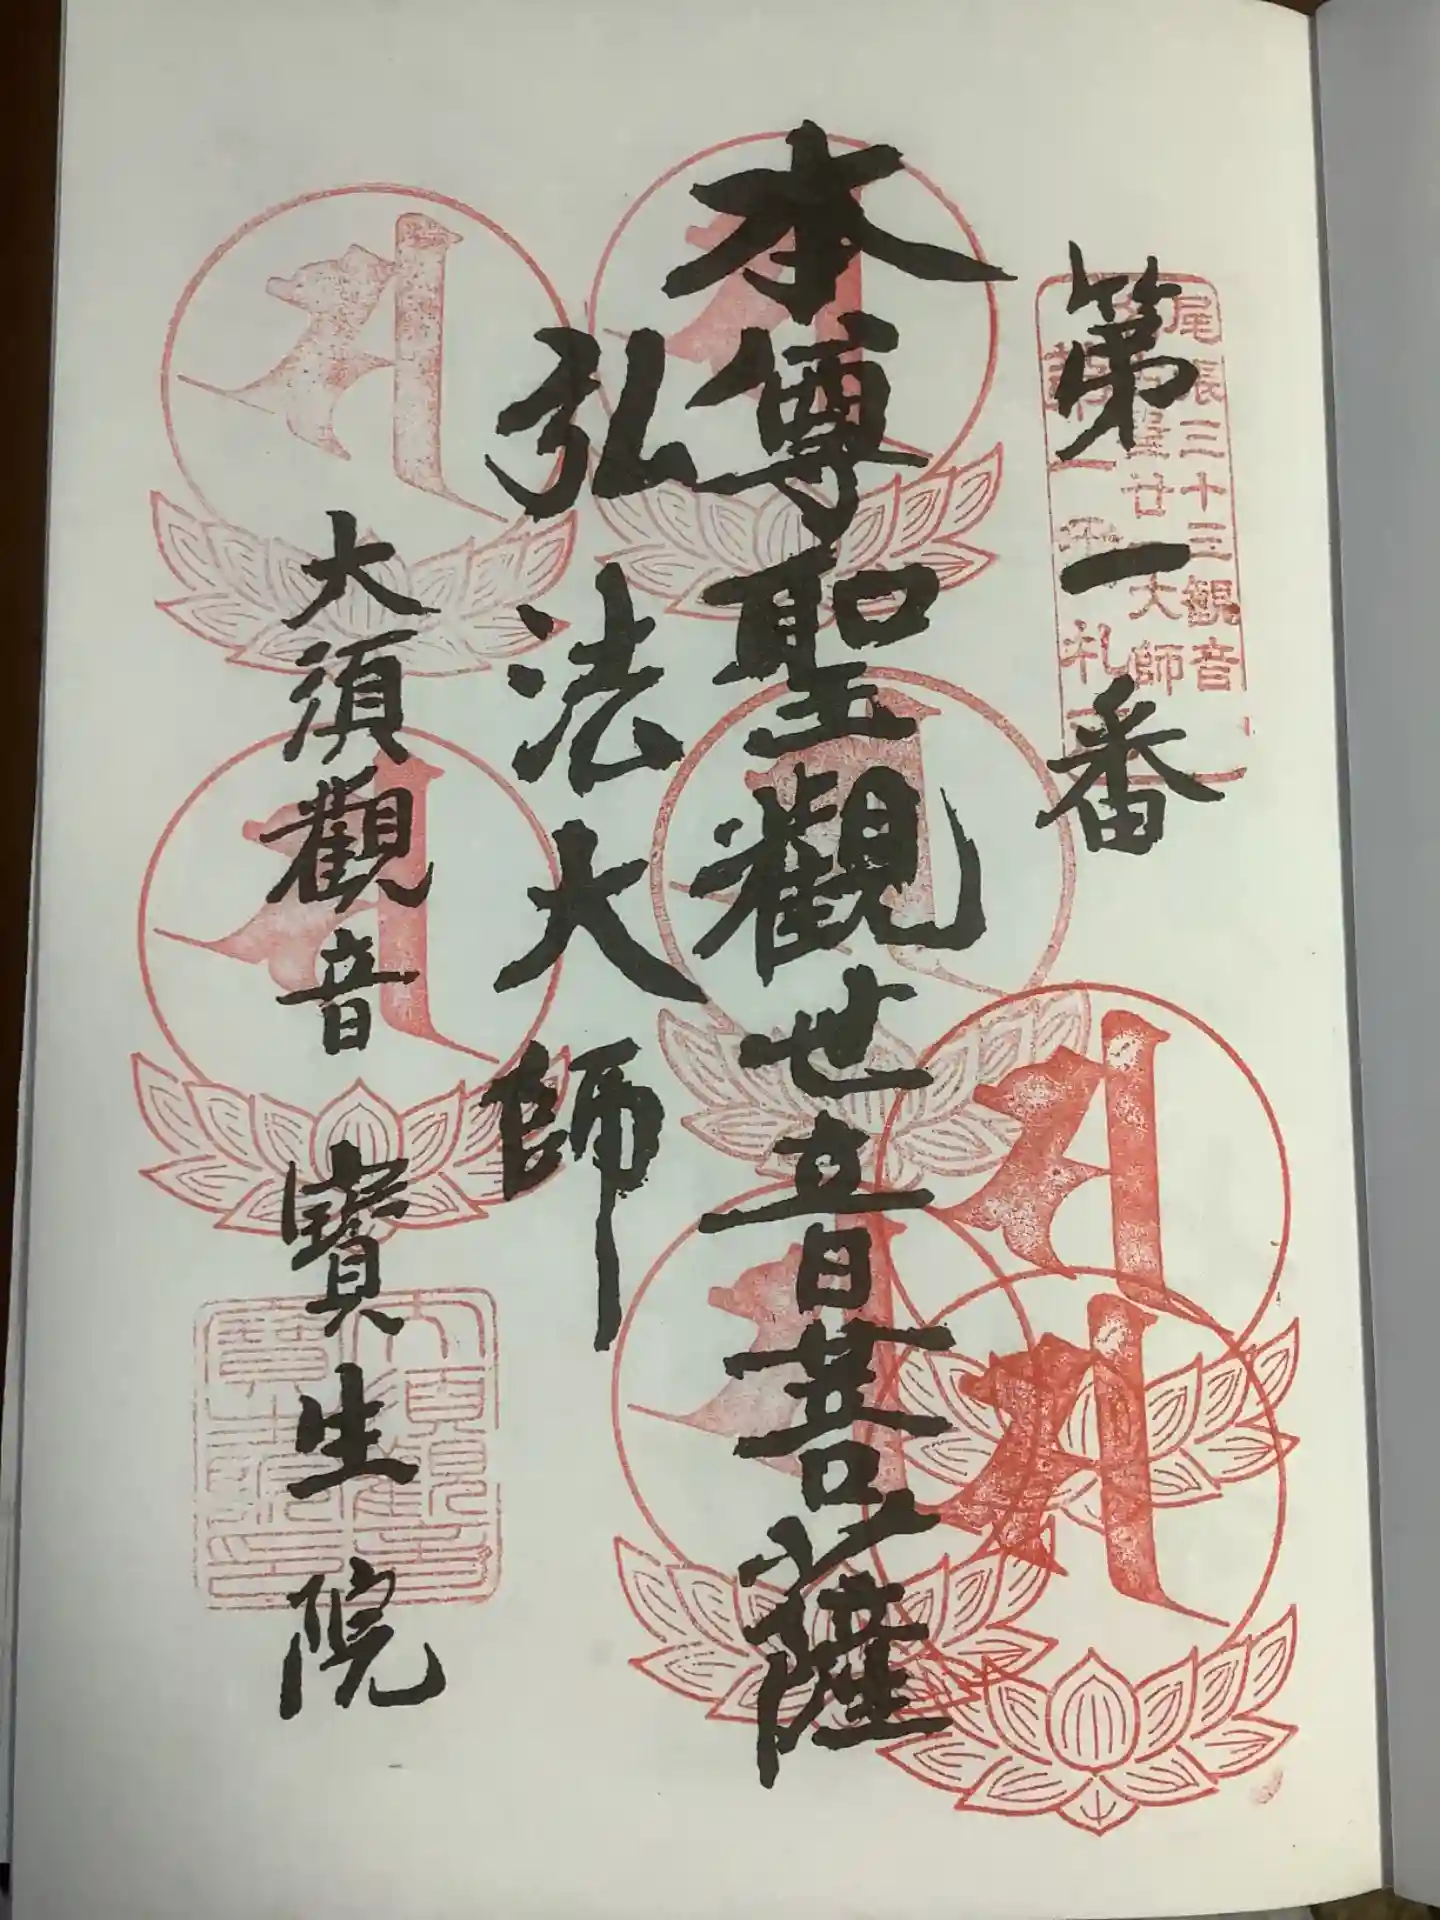 第一番
本尊聖觀世音菩薩
弘法大師
大須觀音 寶生院
尾張三十三観音
廿一大師
札
大須観音